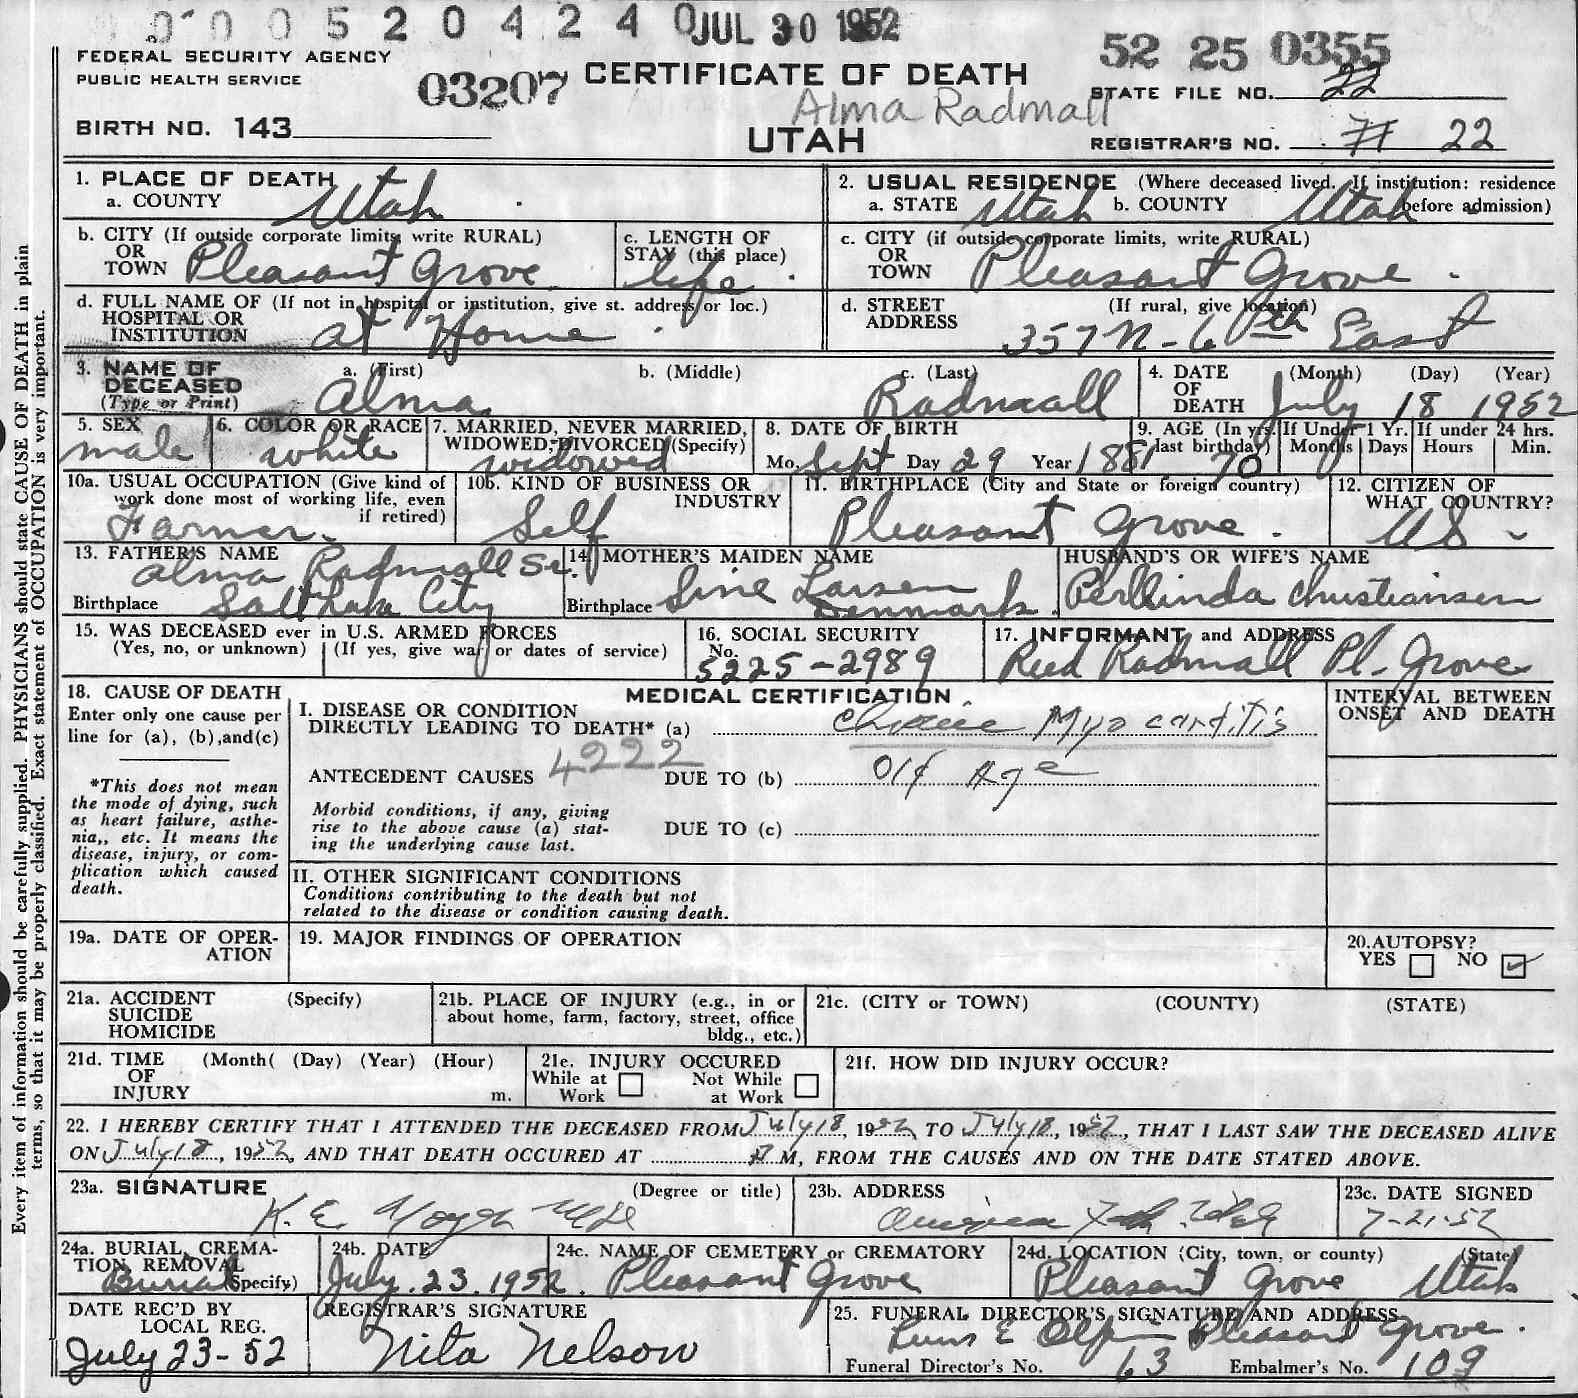 0005204240 JUL 30 1952
FEDERAL SECURITY AGENCY
PUBLIC HEALTH SERVICE
03207
CERTIFICATE OF DEATH
52 25 0355
STATE FILE NO. 22
Alma Radmall
BIRTH NO. 143
UTAH
REGISTRAR'S NO. 22
1. PLACE OF DEATH
a. COUNTY Utah
2. USUAL RESIDENCE (Where deceased lived. If institution: residence before admission)
a. STATE Utah b. COUNTY Utah
b. CITY (If outside corporate limits, write RURAL) OR TOWN Pleasant Grove
c. LENGTH OF STAY (this place) life
c. CITY (if outside corporate limits, write RURAL) OR TOWN Pleasant Grove
d. FULL NAME OF HOSPITAL OR INSTITUTION (If not in hospital or institution, give st. address or loc.) at Home
d. STREET ADDRESS (If rural, give location) 357 N - 6th East
3. NAME OF DECEASED (Type or Print) a. (First) Alma b. (Middle) c. (Last) Radmall
4. DATE OF DEATH (Month) (Day) (Year) July 18 1952
5. SEX male
6. COLOR OR RACE white
7. MARRIED, NEVER MARRIED, WIDOWED, DIVORCED (Specify) widowed
8. DATE OF BIRTH Mo. Sept Day 29 Year 1881
9. AGE (In yrs. last birthday) 70
If Under 1 Yr. Months Days
If under 24 hrs. Hours Min.
10a. USUAL OCCUPATION (Give kind of work done most of working life, even if retired) Farmer
10b. KIND OF BUSINESS OR INDUSTRY Self
11. BIRTHPLACE (City and State or foreign country) Pleasant Grove.
12. CITIZEN OF WHAT COUNTRY? US
13. FATHER'S NAME Alma Radmall Sr.
Birthplace Salt Lake City
14. MOTHER'S MAIDEN NAME Sine Larsen
Birthplace Denmark
HUSBAND'S OR WIFE'S NAME Perllinda Christiansen
15. WAS DECEASED ever in U.S. ARMED FORCES
(Yes, no, or unknown) (If yes, give war or dates of service)
16. SOCIAL SECURITY No. 5225-2989
17. INFORMANT and ADDRESS Reed Radmall Pl. Grove
18. CAUSE OF DEATH
Enter only one cause per line for (a), (b), and (c)
*This does not mean the mode of dying, such as heart failure, asthenia,, etc. It means the disease, injury, or complication which caused death.
MEDICAL CERTIFICATION
INTERVAL BETWEEN ONSET AND DEATH
I. DISEASE OR CONDITION DIRECTLY LEADING TO DEATH* (a) Myocarditis
4222
ANTECEDENT CAUSES DUE TO (b) Old Age
Morbid conditions, if any, giving rise to the above cause (a) stating the underlying cause last.
DUE TO (c)
II. OTHER SIGNIFICANT CONDITIONS
Conditions contributing to the death but not related to the disease or condition causing death.
19a. DATE OF OPERATION
19. MAJOR FINDINGS OF OPERATION
20. AUTOPSY? YES NO
21a. ACCIDENT SUICIDE HOMICIDE (Specify)
21b. PLACE OF INJURY (e.g., in or about home, farm, factory, street, office bldg., etc.)
21c. (CITY or TOWN) (COUNTY) (STATE)
21d. TIME OF INJURY (Month( (Day) (Year) (Hour) m.
21e. INJURY OCCURED While at Work Not While at Work
21f. HOW DID INJURY OCCUR?
22. I HEREBY CERTIFY THAT I ATTENDED THE DECEASED FROM July 18, 1952 TO July 18, 1952, THAT I LAST SAW THE DECEASED ALIVE
ON July 18, 1952, AND THAT DEATH OCCURED AT M, FROM THE CAUSES AND ON THE DATE STATED ABOVE.
23a. SIGNATURE (Degree or title) K. E.
23b. ADDRESS
23c. DATE SIGNED 7-21-52
24a. BURIAL, CREMATION, REMOVAL (Specify) Burial
24b. DATE July 23, 1952
24c. NAME OF CEMETERY or CREMATORY Pleasant Grove
24d. LOCATION (City, town, or county) (State) Pleasant Grove Utah
DATE REC'D BY LOCAL REG. July 23-52
REGISTRAR'S SIGNATURE Nita Nelson
25. FUNERAL DIRECTOR'S SIGNATURE AND ADDRESS E Olpin Pleasant Grove.
Funeral Director's No. 63 Embalmer's No. 109
Every item of information should be carefully supplied. PHYSICIANS should state CAUSE OF DEATH in plain
terms, so that it may be properly classified. Exact statement of OCCUPATION is very important.